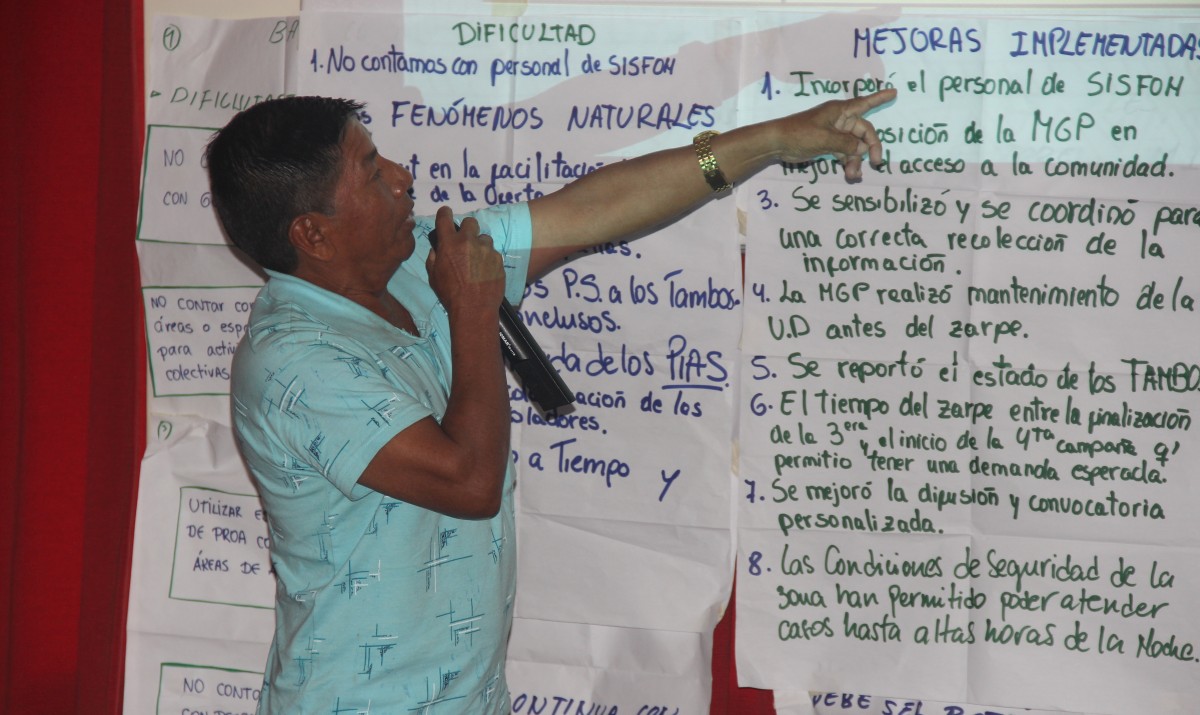 1
BA
DIFICULTADES
NO
CON
NO CONTAR CON
áreas o esp
para activ
colectivas
UTILIZAR E
DE PROA CO
ÁREAS DE
NO CONTA
DIFICULTAD
1. No contamos con personal de SISFOH
FENÓMENOS NATURALES
en la facilitació
de la Oferta
P.S. a los Tambos.
nclusos.
da de los PIAS.
ación de los
bladores.
a Tiempo y
CONTINUA CON
MEJORAS IMPLEMENTADAS
1. Incorporó el personal de SISFOH
osición de la MGP en
mejor el acceso a la comunidad.
3. Se sensibilizó y se coordinó para
una correcta recolección de la
información.
4. La MGP realizó mantenimiento de la
U.D antes del zarpe.
5. Se reportó el estado de los TAMBO
6. El Tiempo del zarpe entre la finalización
de la 3era y el inicio de la 4ta campaña q'
permitio tener una demanda esperada.
7. Se mejoró la difusión y convocatoria
personalizada.
8. Las Condiciones de Seguridad de la
zona han permitido poder atender
casos hasta altas horas de la Noche.
DEBE SER